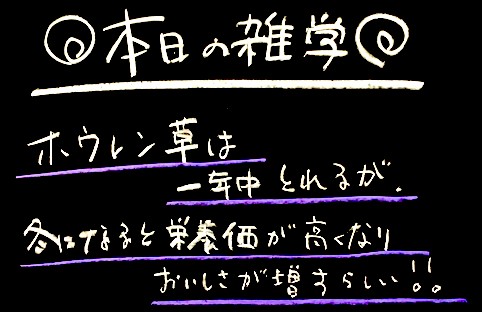 本日の雑学
ホウレン草は
一年中とれるが、
冬になると栄養価が高くなり
おいしさが増すらしい!!